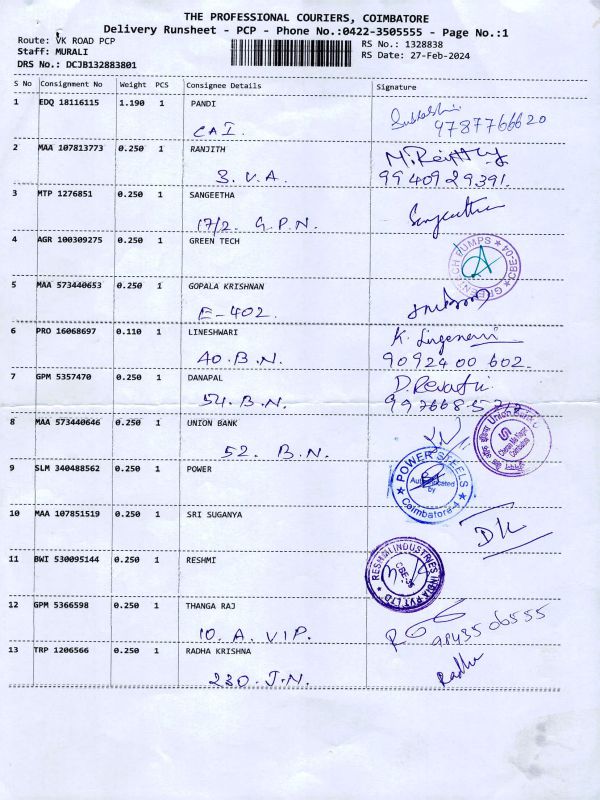 THE PROFESSIONAL COURIERS, COIMBATORE
Delivery Runsheet - PCP - Phone No.:0422-3505555 - Page No.:1
Route: VK ROAD PCP
Staff: MURALI
DRS No.: DCJB132883801
RS No.: 1328838
RS Date: 27-Feb-2024
S No Consignment No Weight PCS Consignee Details Signature
1 EDQ 18116115 1.190 1 PANDI
CAI. 4787766620
2 MAA 107813773 0.250 1 RANJITH
S.V.A. 9940929391.
3 MTP 1276851 0.250 1 SANGEETHA
17/2. G.P.N. Sangeetha
4 AGR 100309275 0.250 1 GREEN TECH
GREENTECH PUMPS CBE-04
5 MAA 573440653 0.250 1 GOPALA KRISHNAN
E-402.
6 PRO 16068697 0.110 1 LINESHWARI
40.B.N. 9092400 602.
7 GPM 5357470 0.250 1 DANAPAL D. Revathi
54.B.N.
8 MAA 573440646 0.250 1 UNION BANK
52. B.N.
9 SLM 340488562 0.250 1 POWER
POWER STEELS
by
Coimbatore-4
10 MAA 107851519 0.250 1 SRI SUGANYA
DK
11 BWI 530095144 0.250 1 RESHMI
RESHMI INDUSTRIES INDIA PVT LTD
12 GPM 5366598 0.250 1 THANGA RAJ
10. A. VIP. 9843506555
13 TRP 1206566 0.250 1 RADHA KRISHNA
230.J.N. Radha